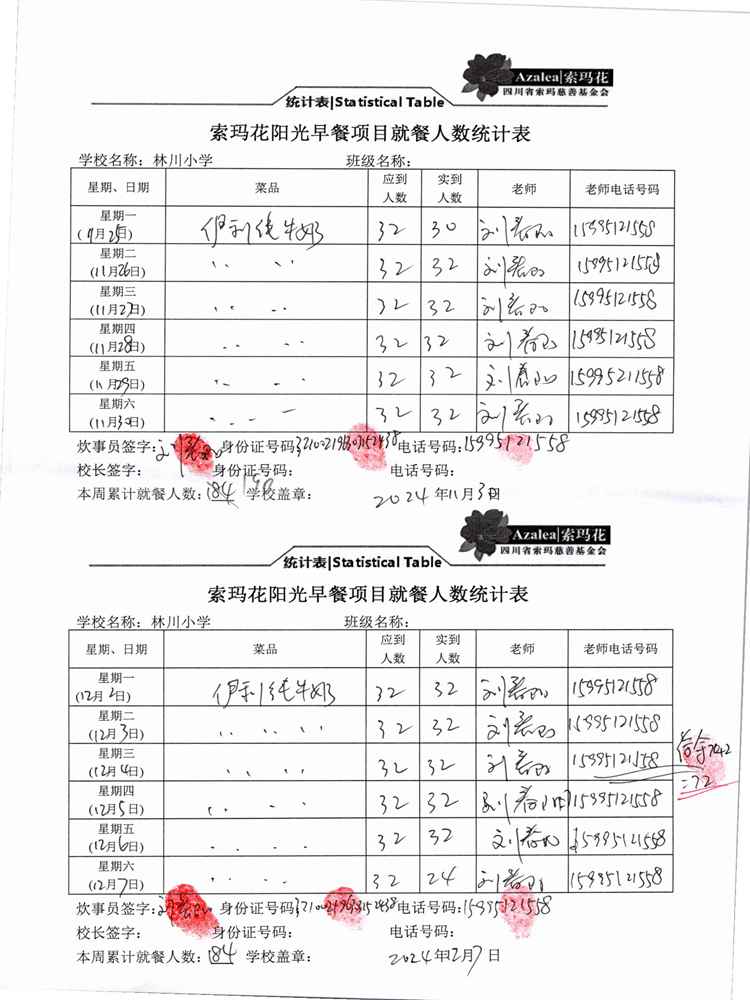 Azalea|索玛花
四川省索玛慈善基金会
统计表|Statistical Table
索玛花阳光早餐项目就餐人数统计表
学校名称：林川小学 班级名称：
星期、日期 菜品 应到人数 实到人数 老师 老师电话号码
星期一 (11月25日) 伊利纯牛奶 32 30 15995121558
星期二 (11月26日) 〃 〃 32 32 15995121558
星期三 (11月27日) 〃 〃 32 32 15995121558
星期四 (11月28日) 〃 〃 32 32 15995121558
星期五 (11月29日) 〃 〃 32 32 15995211558
星期六 (11月30日) 〃 〃 32 32 15995121558
炊事员签字： 身份证号码： 电话号码：15995121558
校长签字： 身份证号码： 电话号码：
本周累计就餐人数：184 190 学校盖章： 2024年11月30日
Azalea|索玛花
四川省索玛慈善基金会
统计表|Statistical Table
索玛花阳光早餐项目就餐人数统计表
学校名称：林川小学 班级名称：
星期、日期 菜品 应到人数 实到人数 老师 老师电话号码
星期一 (12月2日) 伊利纯牛奶 32 32 15995121558
星期二 (12月3日) 〃 〃 32 32 15995121558
星期三 (12月4日) 〃 〃 32 32 15995121558
星期四 (12月5日) 〃 〃 32 32 15995121558
星期五 (12月6日) 〃 〃 32 32 15995121558
星期六 (12月7日) 〃 〃 32 24 15995121558
=72
炊事员签字： 身份证号码： 电话号码：15995121558
校长签字： 身份证号码： 电话号码：
本周累计就餐人数：184 学校盖章： 2024年12月7日